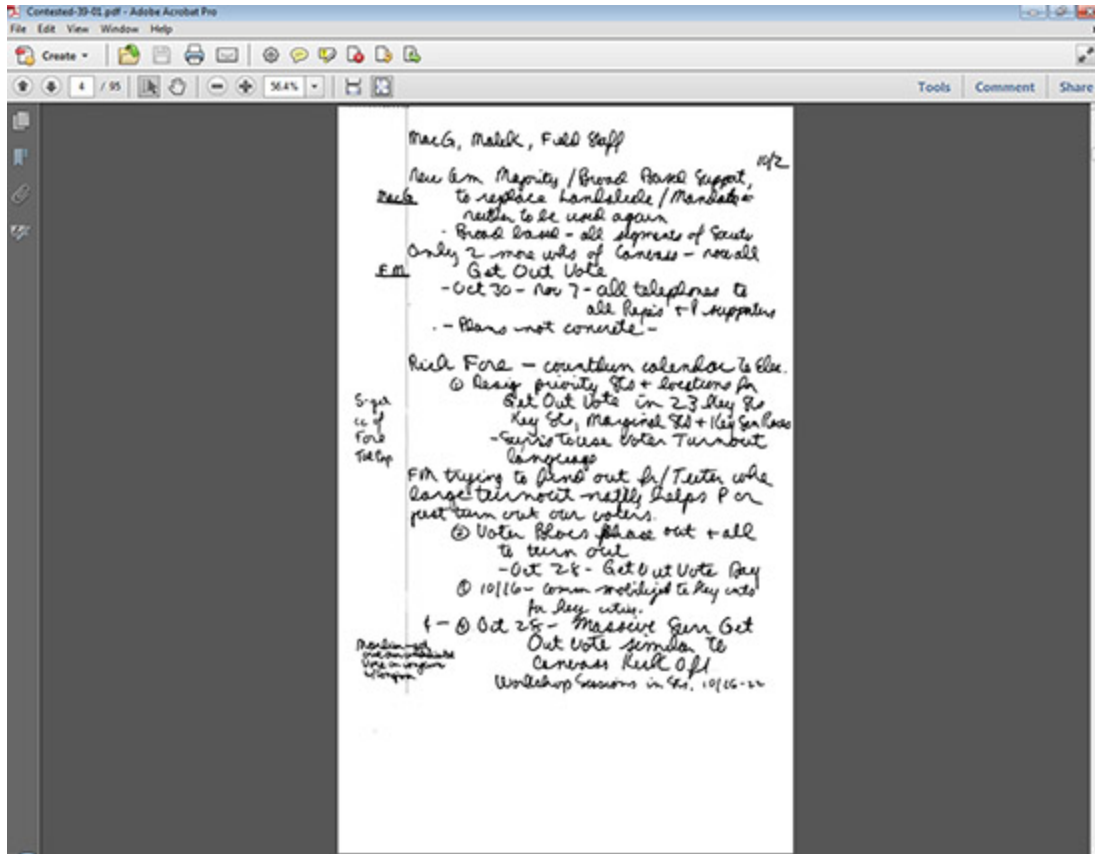 Contested-39-01.pdf - Adobe Acrobat Pro
File Edit View Window Help
Create
4 / 95 56.4% Tools Comment Share
MacG, Malek, Field Staff
10/2
New Am Majority / Broad Based Support,
MacG to replace Landslide / Mandate
neither to be used again
- Broad based - all segments of
Only 2 more wks of Canvass - now all
F.M. Get Out Vote
- Oct 30 - Nov 7 - all telephones to
all + P supporters
- Plans not concrete -
Rich Fore - countdown calendar to Elec.
① Desig priority Sts + locations for
Get Out Vote in 23 Key Sts
Key Sts, Marginal Sts + Key Sen Races
- to use Voter Turnout
language
S-get
cc of
Fore
FM trying to find out fr/Teeter
large turnout helps P or
just turn out our voters.
② Voter Blocs phase out + all
to turn out
- Oct 28 - Get Out Vote Day
③ 10/16 - to key
for key cities.
④ Oct 28 - Massive Surr Get
Out Vote similar to
Canvass Kick Off
Workshop Sessions in Sts, 10/16-22